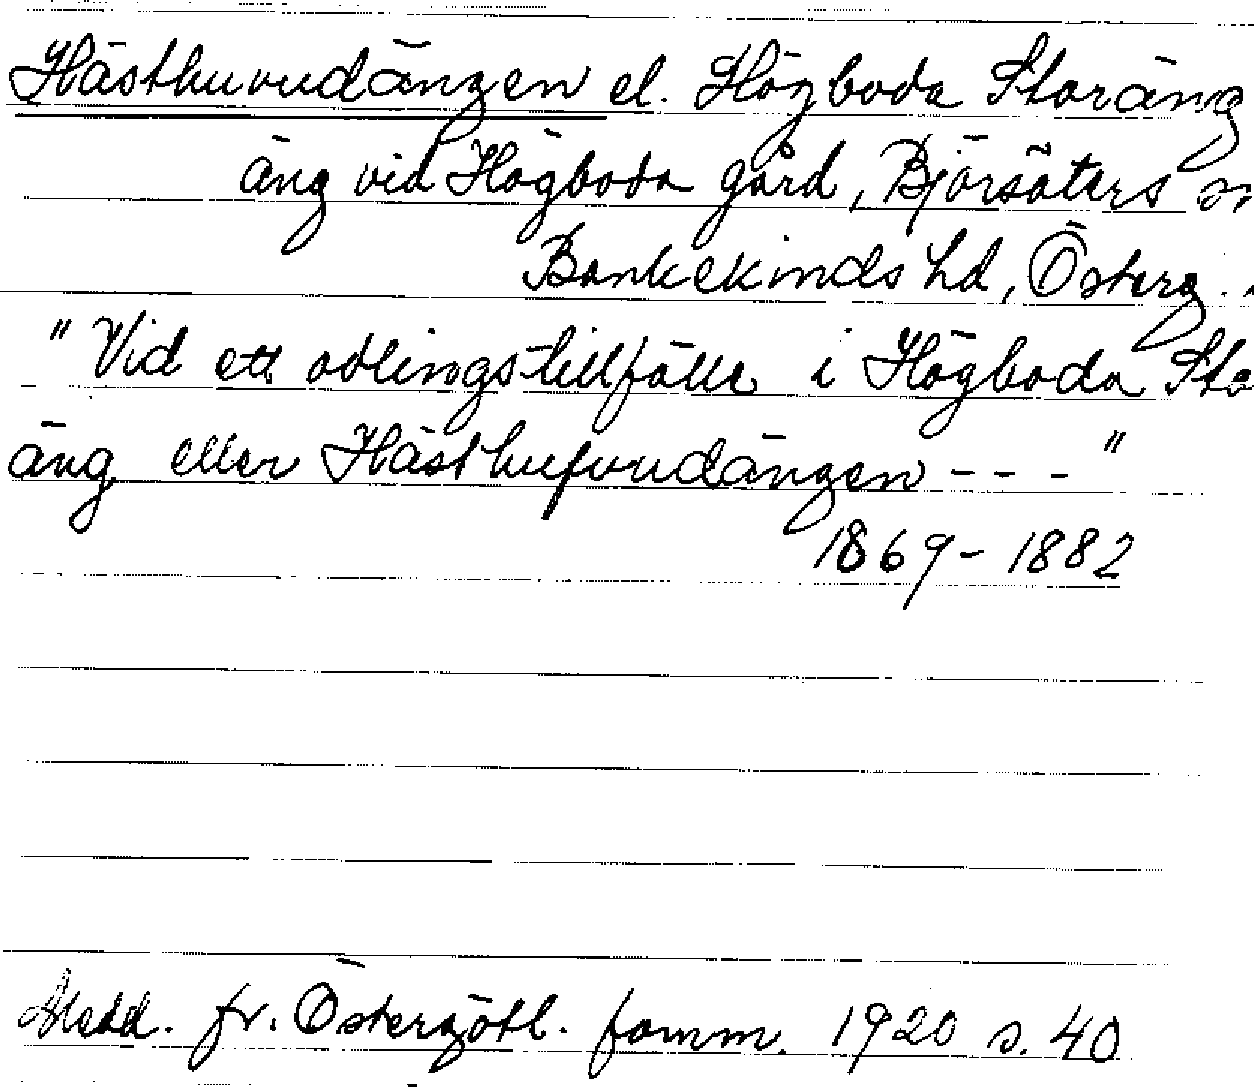 Hästhuvudängen el. Högboda Storäng
äng vid Högboda gård, Björsäters
Bankekinds hd, Österg.
"Vid ett odlingstillfälle i Högboda Sto
äng eller Hästhufvudängen - - - "
1869 - 1882
Medd. fr. Östergötl. fornm. 1920 s. 40